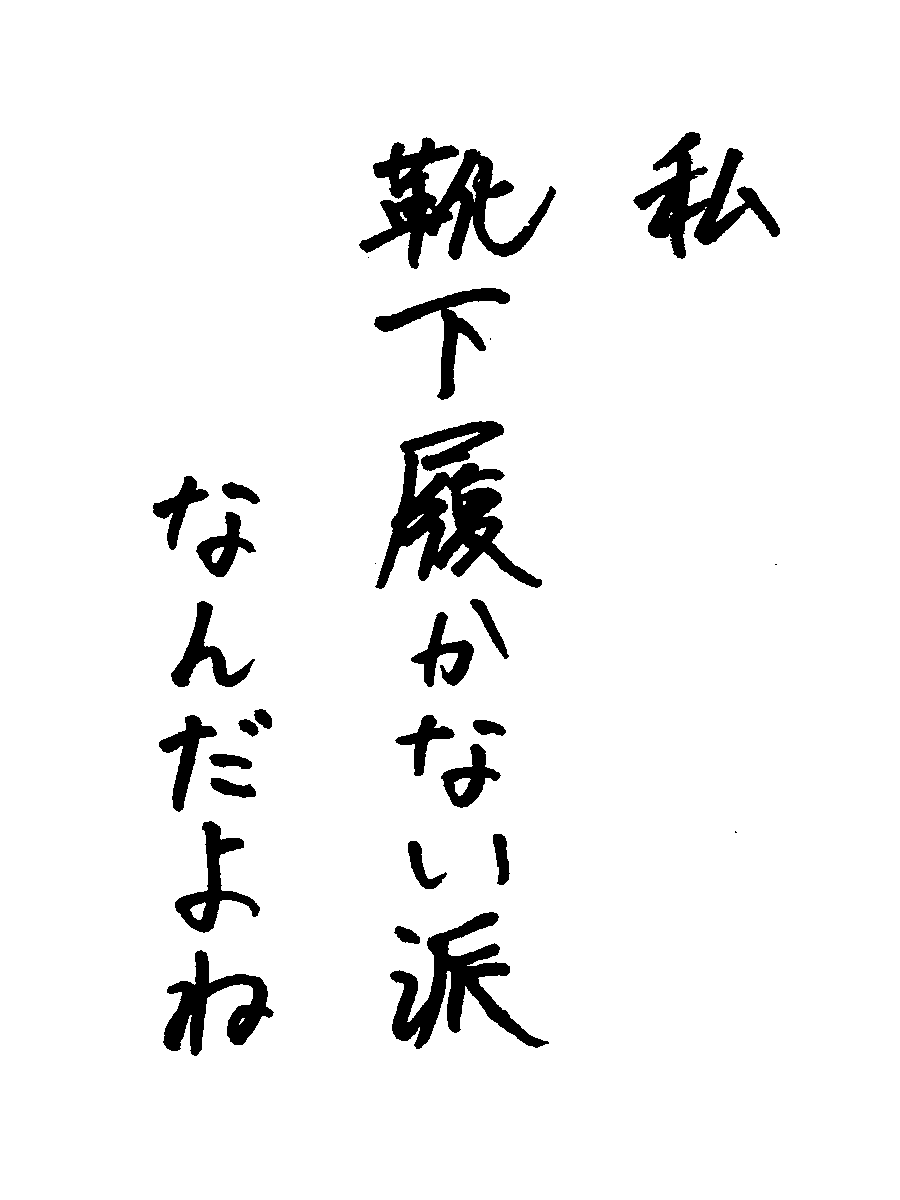 私
靴下履かない派
なんだよね